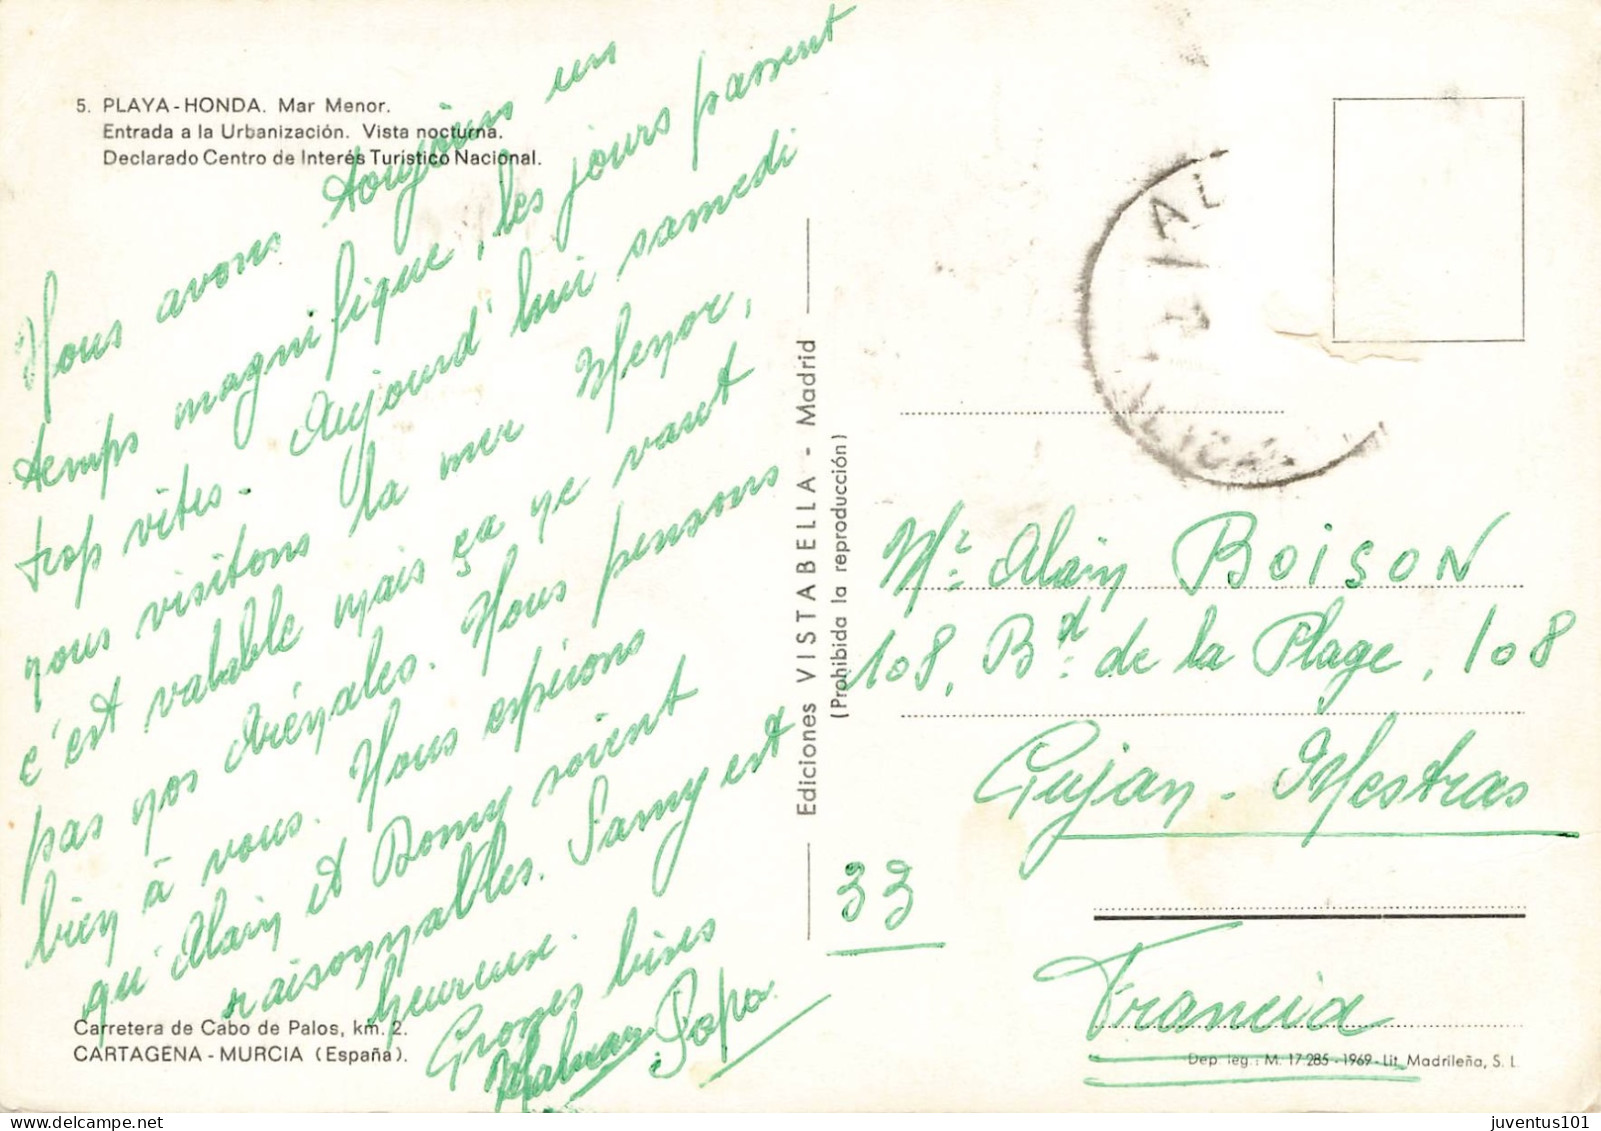 5. PLAYA-HONDA. Mar Menor.
Entrada a la Urbanización. Vista nocturna.
Declarado Centro de Interés Turístico Nacional.
Nous avons toujours un
temps magnifique, les jours passent
trop vites. Aujourd'hui samedi
nous visitons la mer Menor,
c'est valable mais ça ne vaut
pas nos Arénales. Nous pensons
bien à vous. Nous espérons
qu'Alain et Bomy soient
raisonnables. Samy est
heureuse.
Grosses bises
Papa
Carretera de Cabo de Palos, km. 2.
CARTAGENA - MURCIA (España).
Ediciones VISTABELLA - Madrid
(Prohibida la reproducción)
Mr. Alain BOISON
108, Bd. de la Plage, 108
Gujan-Mestras
33
Francia
Dep. leg.: M. 17.285-1969-Lit. Madrileña, S. L.
juventus101